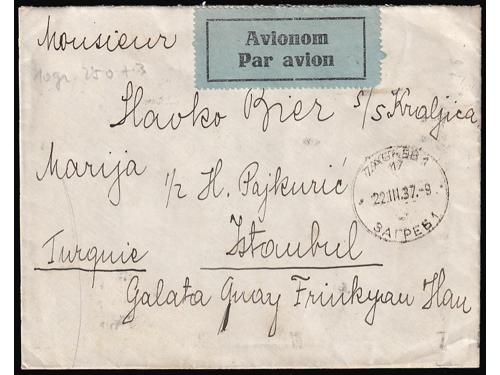 Monsieur
Avionom
Par avion
10gr. 250+3
Slavko Bier s/s Kraljica
Marija ½ H. Pajkurić
ZAGREB 1
17
22.III.37.-9
ЗАГРЕБ 1
Turquie Istanbul
Galata Quay Frinkyan Han